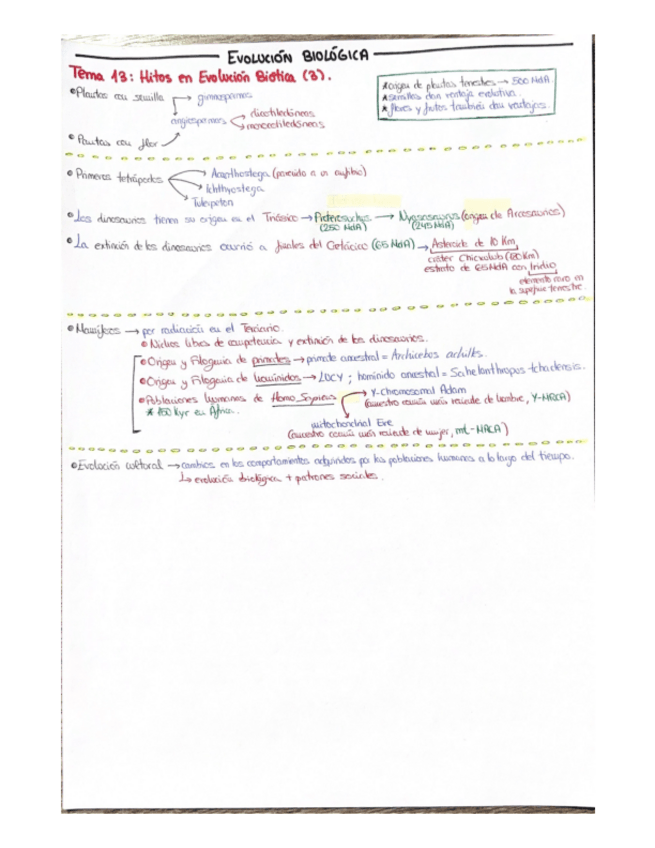 EVOLUCIÓN BIOLÓGICA
Tema 13: Hitos en Evolución Biótica (3).
• Plantas con semilla → gimnospermas
angiospermas → dicotiledóneas
monocotiledóneas
• Plantas con flor
* origen de plantas terrestres → 500 MdA.
* semillas dan ventaja evolutiva.
* flores y frutos también dan ventajas.
• Primeros tetrápodos → Acanthostega (parecido a un anfibio)
Ichthyostega
Tulerpeton
• Los dinosaurios tienen su origen en el Triásico → → Nyasasaurus (origen de Arcosaurios)
(250 MdA) (245 MdA)
• La extinción de los dinosaurios ocurrió a finales del Cretácico (65 MdA) → Asteroide de 10 Km,
cráter Chicxulub (180 Km)
estrato de 65 MdA con Iridio
elemento raro en
la superficie terrestre.
• Mamíferos → por radiación en el Terciario.
• Nichos libres de competencia y extinción de los dinosaurios.
• Origen y Filogenia de primates → primate ancestral = Archicebus achilles.
• Origen y Filogenia de homínidos → LUCY ; homínido ancestral = Sahelanthropus tchadensis.
• Poblaciones humanas de Homo Sapiens → Y-Chromosomal Adam
* 150 Kyr en África. (ancestro común más reciente de hombre, Y-MRCA)
mitochondrial Eve
(ancestro común más reciente de mujer, mt-MRCA)
• Evolución cultural → cambios en los comportamientos adquiridos por las poblaciones humanas a lo largo del tiempo.
↳ evolución biológica + patrones sociales.